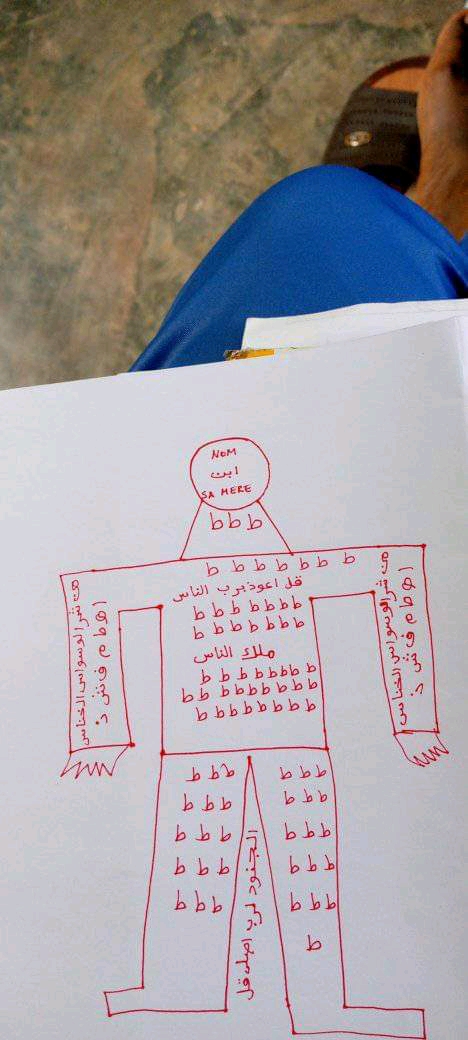 NOM
ابن
SA MERE
ط ط ط
ط ط ط ط ط ط ط
قل اعوذ برب الناس
ط ط ط ط ط ط ط
ط ط ط ط ط ط ط
ملك الناس
ط ط ط ط ط ط ط ط
ط ط ط ط ط ط ط ط ط
ط ط ط ط ط ط ط ط
من شر الوسواس الخناس
اهطم ف ش ذ
من شر الوسواس الخناس
اهطم ف ش ذ
ط ط ط
ط ط ط
ط ط ط
ط ط ط
ط ط ط
ط ط ط
ط ط ط
ط ط ط
ط ط ط
ط ط ط
ط
الجنود لرب